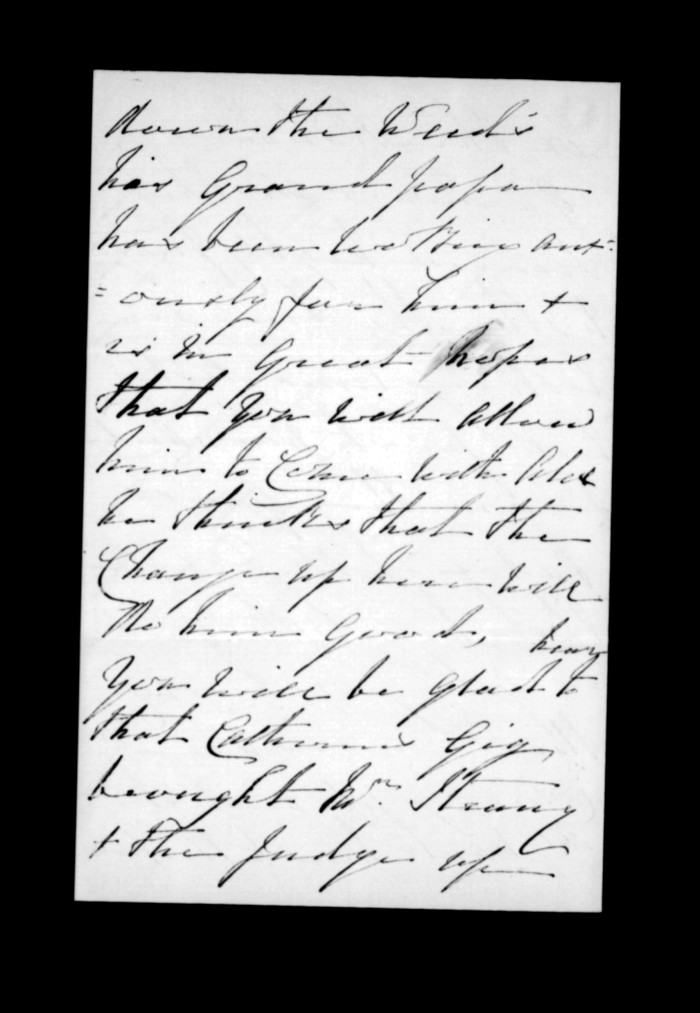 down the
his Grand papa
has been looking anx:
=iously for him +
is in great hopes
that you will allow
him to come with Alex
he thinks that the
Change up here will
do him good,
hear
you will be glad to
that Catherine's Gig
brought Mr. Strang
+ the Judge up